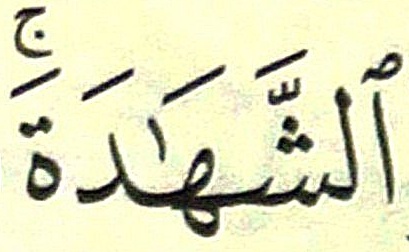 ٱلشَّهَـٰدَةَ ۚ